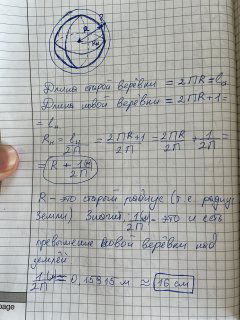 R
Длина старой верёвки = 2ПR = l₀
Длина новой верёвки = 2ПR + 1 =
= lн
Rн = lн/2П = 2ПR+1/2П = 2ПR/2П + 1/2П =
= R + 1м/2П
R - это старый радиус (т.е. радиус
Земли). Значит, 1м/2П - это и есть
превышение новой верёвки над
землёй
1м/2П ≈ 0,15915 м ≈ 16 см
page